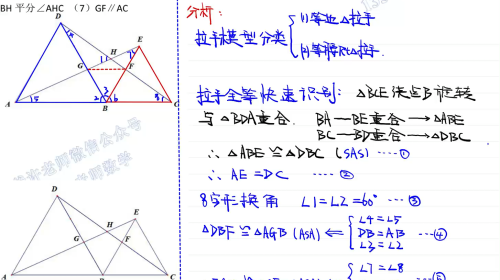 BH 平分∠AHC （7）GF∥AC
分析：
拉手模型分类 { (1)等边△拉手
(2)等腰Rt△拉手
拉手全等快速识别：△BCE绕点B旋转
与△BDA重合. BA—BE重合 → △ABE
BC—BD重合 → △DBC
∴ △ABE ≌ △DBC (SAS) ---- ①
∴ AE = DC ---- ②
8字形换角 ∠1=∠2=60° ---- ③
△DBF ≌ △AGB (ASA) ⇐ { ∠4=∠5
DB=AB ---- ④
∠3=∠2
∠7=∠8
D
E
H
G
F
A
B
C
D
E
H
G
F
A
C